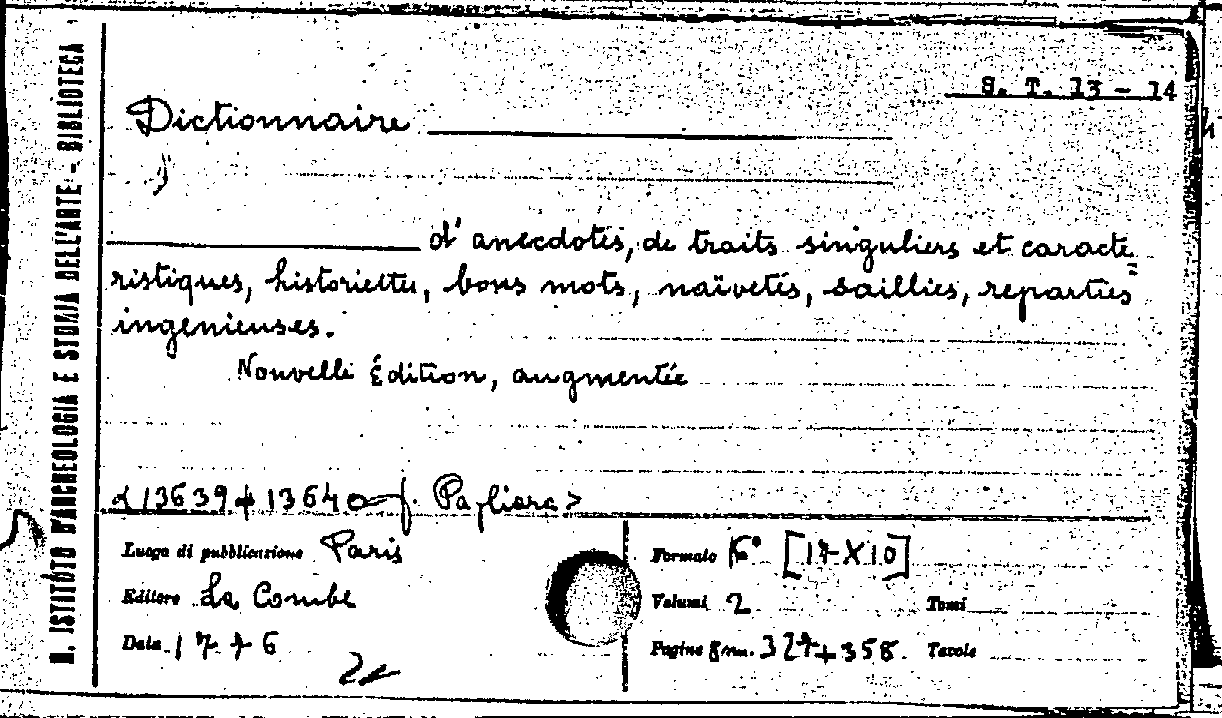 R. ISTITUTO D'ARCHEOLOGIA E STORIA DELL'ARTE - BIBLIOTECA
S. T. 13 - 14
Dictionnaire
d'anecdotes, de traits singuliers et caracte
ristiques, historiettes, bons mots, naïvetés, saillies, reparties
ingenieuses.
Nouvelle Édition, augmentée
<13639+13640 f. Pagliara>
Luogo di pubblicazione Paris
Formato [17X10]
Editore La Combe
Volumi 2 Tomi
Data 1776
Pagine 327+358. Tavole